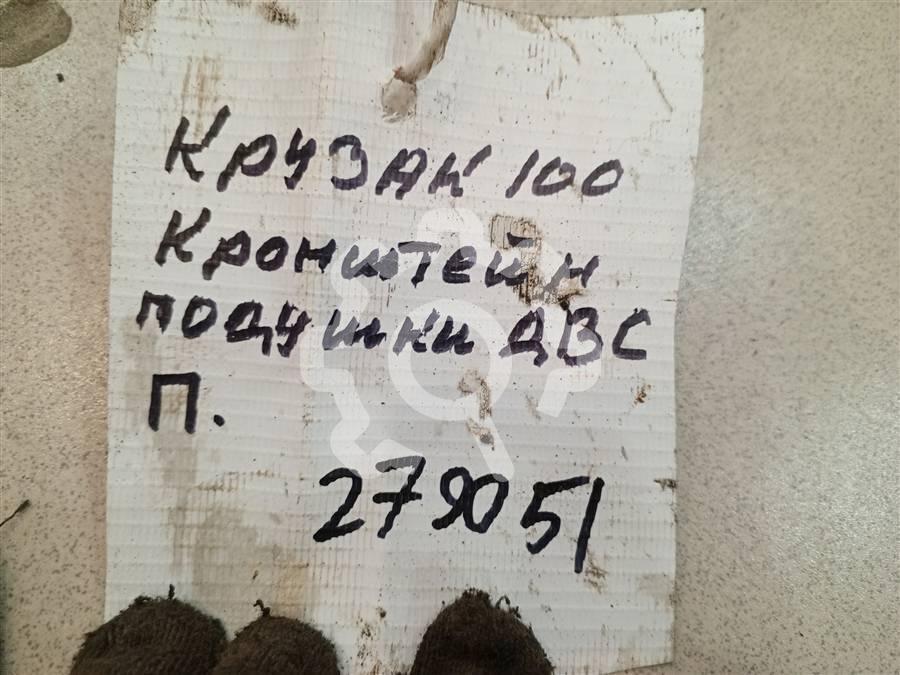 Крузак 100
Кронштейн
подушки ДВС
П.
279051